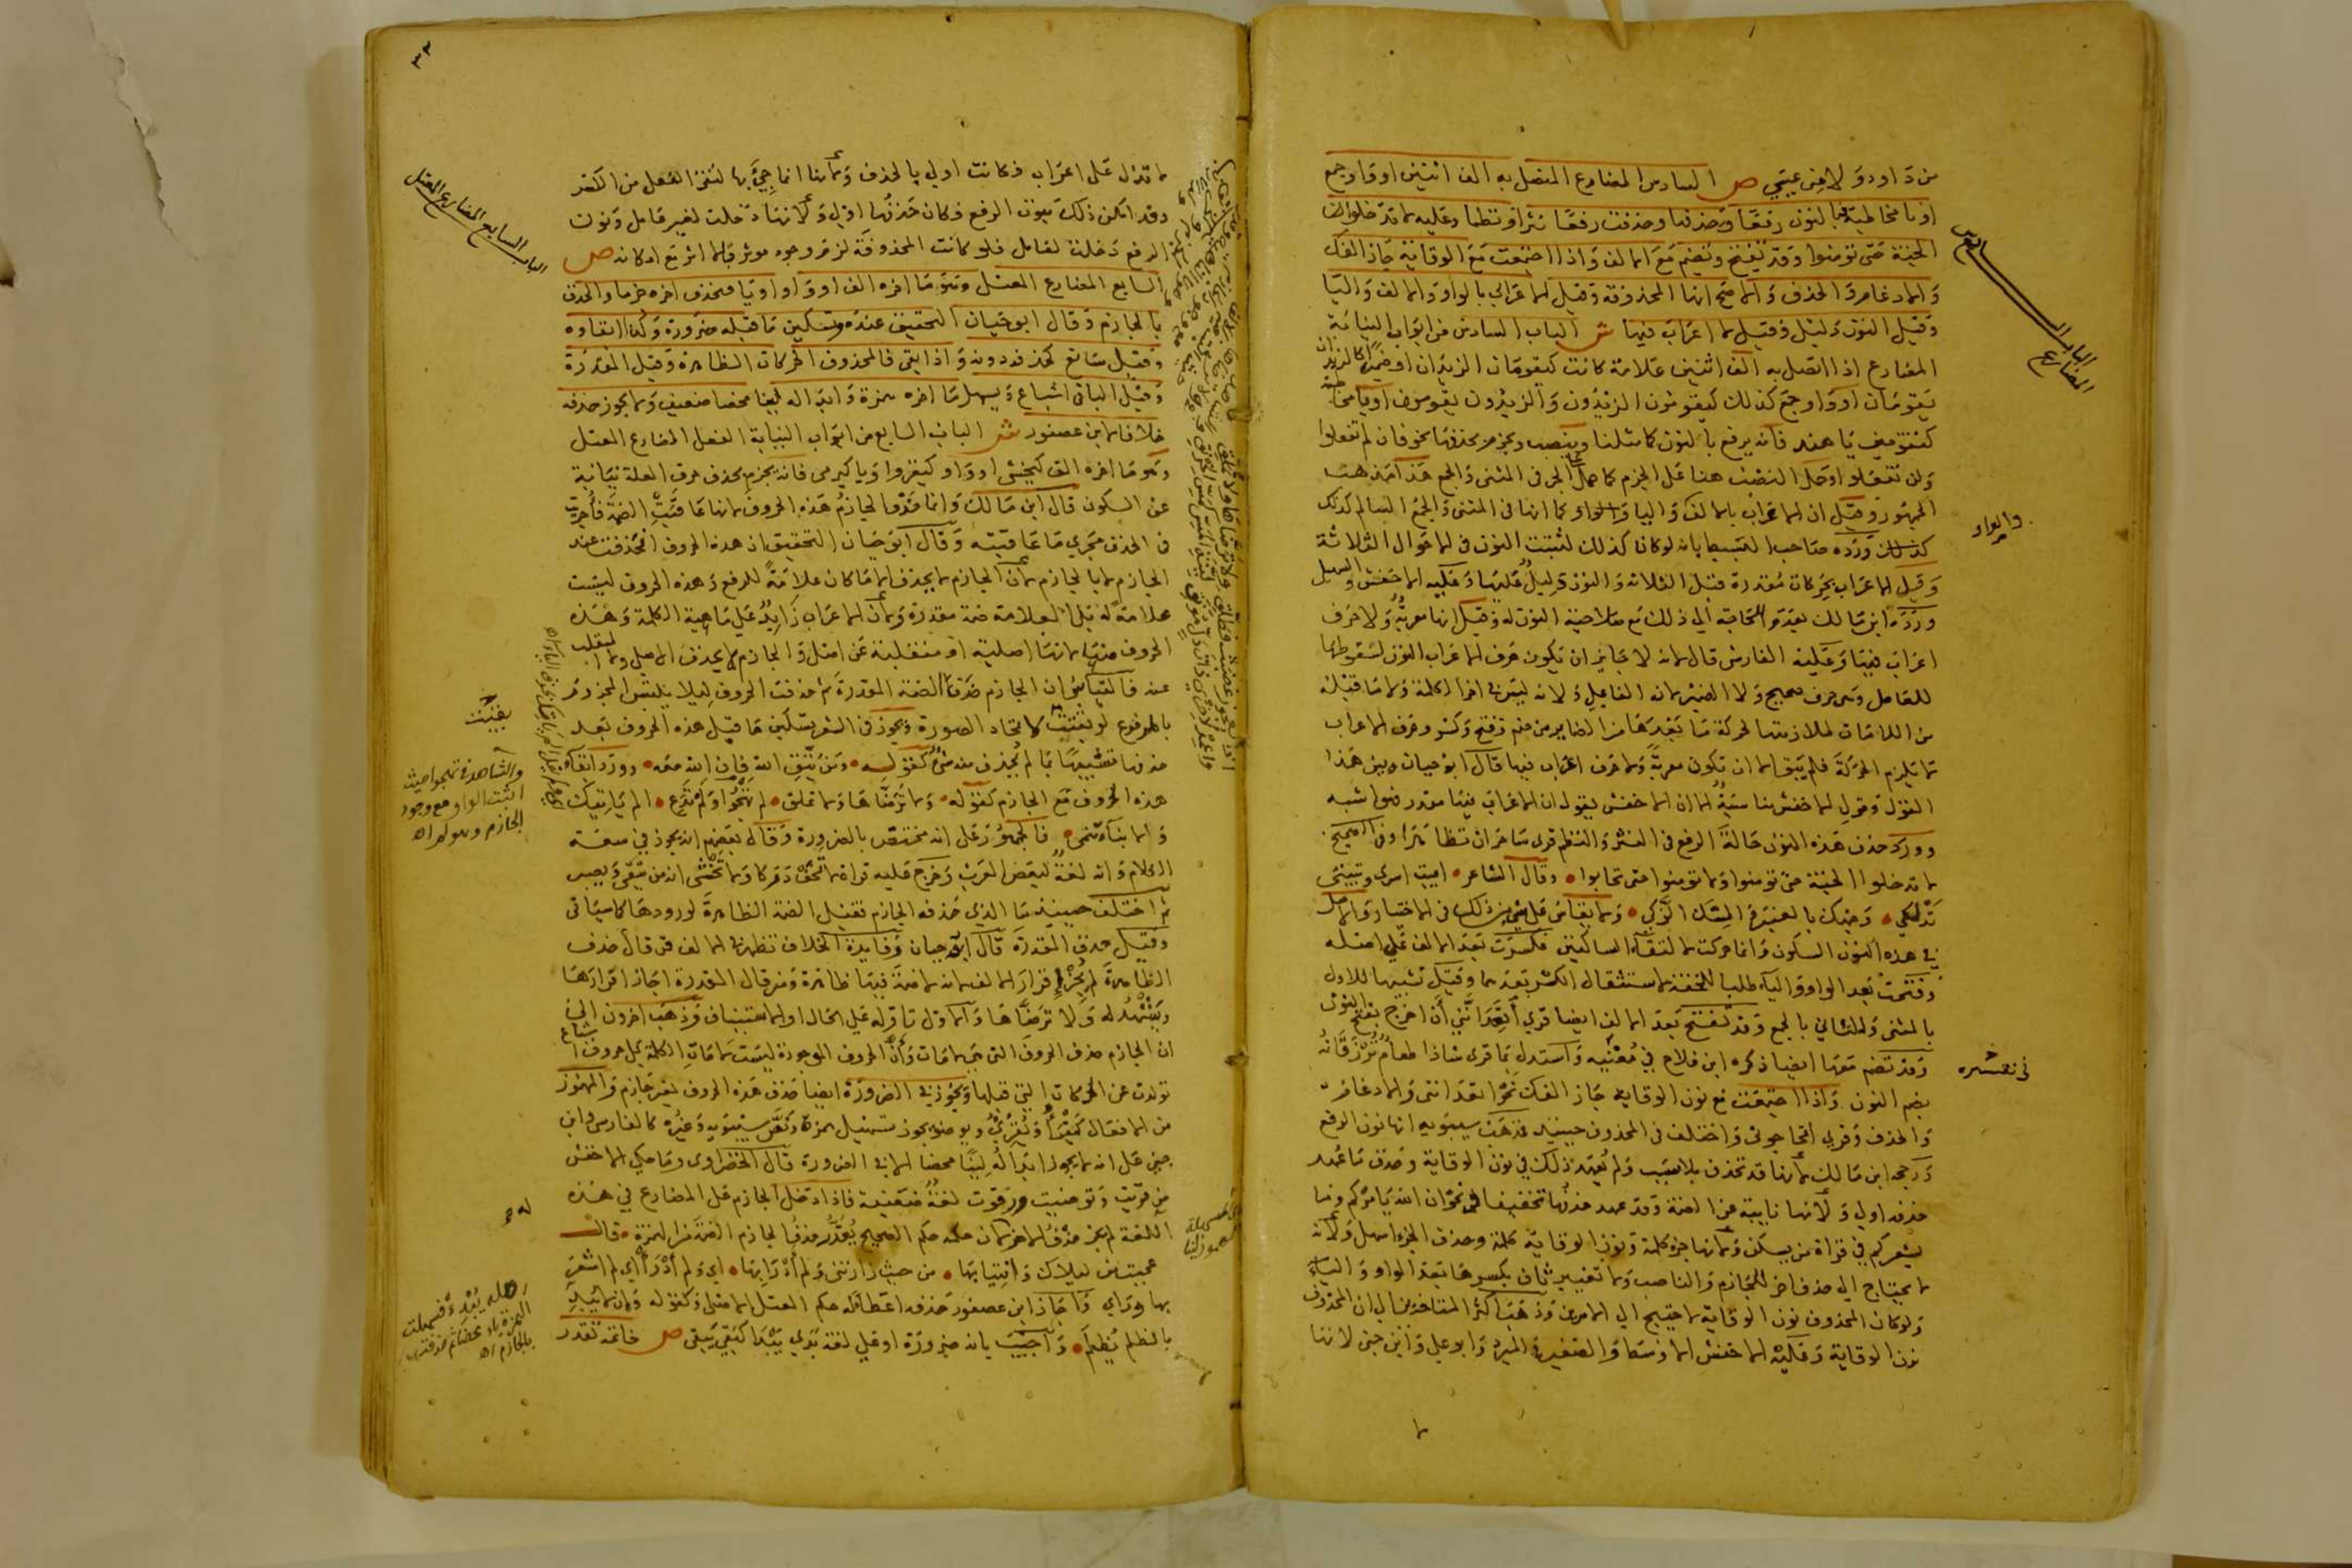 من داود ولا من عيسى ص السادس المضارع المتصل به الف اثنين او واو جمع
او يا مخاطبة فبالنون رفعا وتحذف وحذفت رفعا نثرا ونظما وعليه لا تدخلوا
الجنة حتى تؤمنوا وقد تفتح وتضم مع الالف واذا اجتمعت مع الوقاية جاز الفك
والادغام والحذف والاصح انها المحذوفة وقيل الاعراب بالواو والالف واليا
وقيل النون دليل وقيل لا اعراب فيها ش الباب السادس من ابواب النيابة
المضارع اذا اتصل به الف اثنين علامة كانت كيقومان الزيدان او ضميرا كالزيدان
يقومان او واو جمع كذلك كيقومون الزيدون والزيدون يقومون او يا مخاطبة
كتقومين يا هند فانه يرفع بالنون كما مثلنا وينصب ويجزم بحذفها نحو فان لم تفعلوا
ولن تفعلوا وحمل النصب هنا على الجزم كما حمل على الجر في المثنى والجمع هذا مذهب
الجمهور وقيل ان الاعراب بالالف واليا والواو كما انها في المثنى والجمع السالم كذلك
ورده صاحب البسيط بانه لو كان كذلك لثبتت النون في الاحوال الثلاثة
وقيل الاعراب بحركات مقدرة قبل الثلاثة والنون دليل عليها وعليه الاخفش والسهيلي
ورده ابن مالك بعدم الحاجة الى ذلك مع صلاحية النون له وقيل انها معربة ولا حرف
اعراب فيها وعليه الفارسي قال لانه لا جايز ان يكون حرف الاعراب النون لسقوطها
للعامل وهي حرف صحيح ولا الضمير لانه الفاعل ولانه ليس في اخر الكلمة ولا ما قبله
من اللامات لملازمتها لحركة ما بعدها من الضماير من ضم وفتح وكسر وحرف الاعراب
لا يلزم الحركة فلم يبق الا ان تكون معربة ولا حرف اعراب فيها قال ابو حيان وبين هذا
القول وقول الاخفش مناسبة الا ان الاخفش يقول ان الاعراب فيها مقدر
وورد حذف هذه النون حالة الرفع في النثر والنظم قرى ساحران تظاهرا وفي الصحيح
لا تدخلوا الجنة حتى تؤمنوا ولا تؤمنوا حتى تحابوا وقال الشاعر ابيت اسرى وتبيتى
تدلكي وجهك بالعنبر والمسك الذكي ولا يقاس على شي من ذلك في الاختيار والاصل
في هذه النون السكون وانما حركت لالتقاء الساكنين فكسرت بعد الالف على اصله
وفتحت بعد الواو واليا طلبا للخفة لاستثقال الكسر بعدهما وقيل تشبيها للاول
بالمثنى وللثاني بالجمع وقد تفتح بعد الالف ايضا قرى اتعدانني ان اخرج بفتح النون
وقد تضم معها ايضا ذكره ابن فلاح في مغنيه واستدل بما قرى شاذا طعام ترزقانه
بضم النون واذا اجتمعت مع نون الوقاية جاز الفك نحو اتعدانني والادغام
والحذف وقرى اتحاجوني واختلف في المحذوف حينئذ فذهب سيبويه انها نون الرفع
ورجحه ابن مالك لانها قد تحذف بلا سبب ولم يعهد ذلك في نون الوقاية وحذف ما عهد
حذفه اولى ولانها نايبة عن الضمة وقد عهد حذفها تخفيفا في نحو ان الله يامركم وما
يشعركم في قراة من يسكن ولانها جزء كلمة ونون الوقاية كلمة وحذف الجزء اسهل ولانه
لا يحتاج الى حذف اخر للجازم والناصب ولا تغيير ثان بكسرها بعد الواو واليا
ولو كان المحذوف نون الوقاية لاحتيج الى الامرين وذهب اكثر المتاخرين الى ان المحذوف
نون الوقاية وعليه الاخفش الاوسط والصغير والمبرد وابو علي وابن جني لانها
الباب السادس
المضارع
والواو
٣٢
لا تدل على اعراب فكانت اولى بالحذف ولانها انما جي بها لتقي الفعل من الكسر
وقد امكن ذلك بنون الرفع فكان حذفها اولى ولانها دخلت لغير عامل ونون
الرفع دخلت لعامل فلو كانت المحذوفة لزم وجود موثر بلا اثر مع امكانه ص
السابع المضارع المعتل وهو ما اخره الف او واو او يا فيحذف اخره جزما والحذف
بالجازم وقال ابو حيان التحقيق عنده وتسكين ما قبله ضرورة وكذا ابقاوه
وقيل سائغ كحذفه دونه واذا بقي فالمحذوف الحركات الظاهرة وقيل المقدرة
وقيل الباقى اشباع ويسهل ما اخره همزة وابداله لينا محضا ضعيف ولا يجوز حذفه
خلافا لابن عصفور ش الباب السابع من ابواب النيابة الفعل المضارع المعتل
وهو ما اخره الف كيخشى او واو كيغزو او يا كيرمى فانه يجزم بحذف حرف العلة نيابة
عن السكون قال ابن مالك وانما حذف الجازم هذه الحروف لانها عاقبت الضمة فأجريت
في الحذف مجرى ما عاقبته وقال ابو حيان التحقيق ان هذه الحروف انحذفت عند
الجازم لا بالجازم لان الجازم لا يحذف الا ما كان علامة للرفع وهذه الحروف ليست
علامة له بل العلامة ضمة مقدرة ولان الاعراب زايد على ماهية الكلمة وهذه
الحروف منها لانها اصلية او منقلبة عن اصل والجازم لا يحذف الاصلي ولا المنقلب
عنه فالقياس ان الجازم حذف الضمة المقدرة ثم حذفت الحروف ليلا يلتبس المجزوم
بالمرفوع لو بقيت لاتحاد الصورة ويجوز في الشعر تسكين ما قبل هذه الحروف بعد
حذفها تشبيها بما لم يحذف منه شي كقوله ومن يتق الله فان الله معه وورد ابقاء
هذه الحروف مع الجازم كقوله ولا ترضاها ولا تملق لم تهجو ولم تدع الم ياتيك
والانباء تنمي فالجمهور على انه مختص بالضرورة وقال بعضهم انه يجوز في سعة
الكلام وانه لغة لبعض العرب وخرج عليه قراة لا تخف دركا ولا تخشى انه من يتقي ويصبر
ثم اختلف حينئذ ما الذي حذفه الجازم فقيل الضمة الظاهرة لورودها كما سياتي
وقيل حذف المقدرة قال ابو حيان وفايدة الخلاف تظهر في الالف فمن قال حذف
الظاهرة لم يجز اقرار الالف لانه لا ضمة فيها ظاهرة ومن قال المقدرة اجاز اقرارها
ويشهد له ولا ترضاها والاول تاوله على الحال او الاستيناف وذهب اخرون الى
ان الجازم حذف الحروف التي هي لامات وأن الحروف الموجودة ليست لامات الكلمة بل حروف اشباع
تولدت عن الحركات التي قبلها ويجوز في الضرورة ايضا حذف هذه الحروف لغير جازم والمهموز
من الافعال كيقرأ ويقرئ ويوضو يجوز تسهيل همزه ونص سيبويه وغيره كالفارسي وابن
جني على انه لا يجوز ابداله لينا محضا الا في الضرورة قال الخضراوى وما حكى الاخفش
من قريت وتوضيت ورفوت لغة ضعيفة فاذا دخل الجازم على المضارع في هذه
اللغة لم يجز حذف الاخر لان حكمه حكم الصحيح يقدر حذف الجازم الضمة من الهمزة قال
عجبت من ليلاك وانتيابها من حيث زارتني ولم أورابها اي ولم أورأ اي لم اشعر
بها وراي واجاز ابن عصفور حذفه اعطاء له حكم المعتل الاصلي كقوله وان لا يبد
بالظلم يظلم واجيب بانه ضرورة او على لغة بدى يبدا كبقي يبقى ص خاتمة تقدر
الباب السابع المضارع المعتل
بقيت
والشاهد في تهجو حيث
اثبت الواو مع وجود
الجازم وهو لم اه
اصله يبدء فسهلت
الهمزة